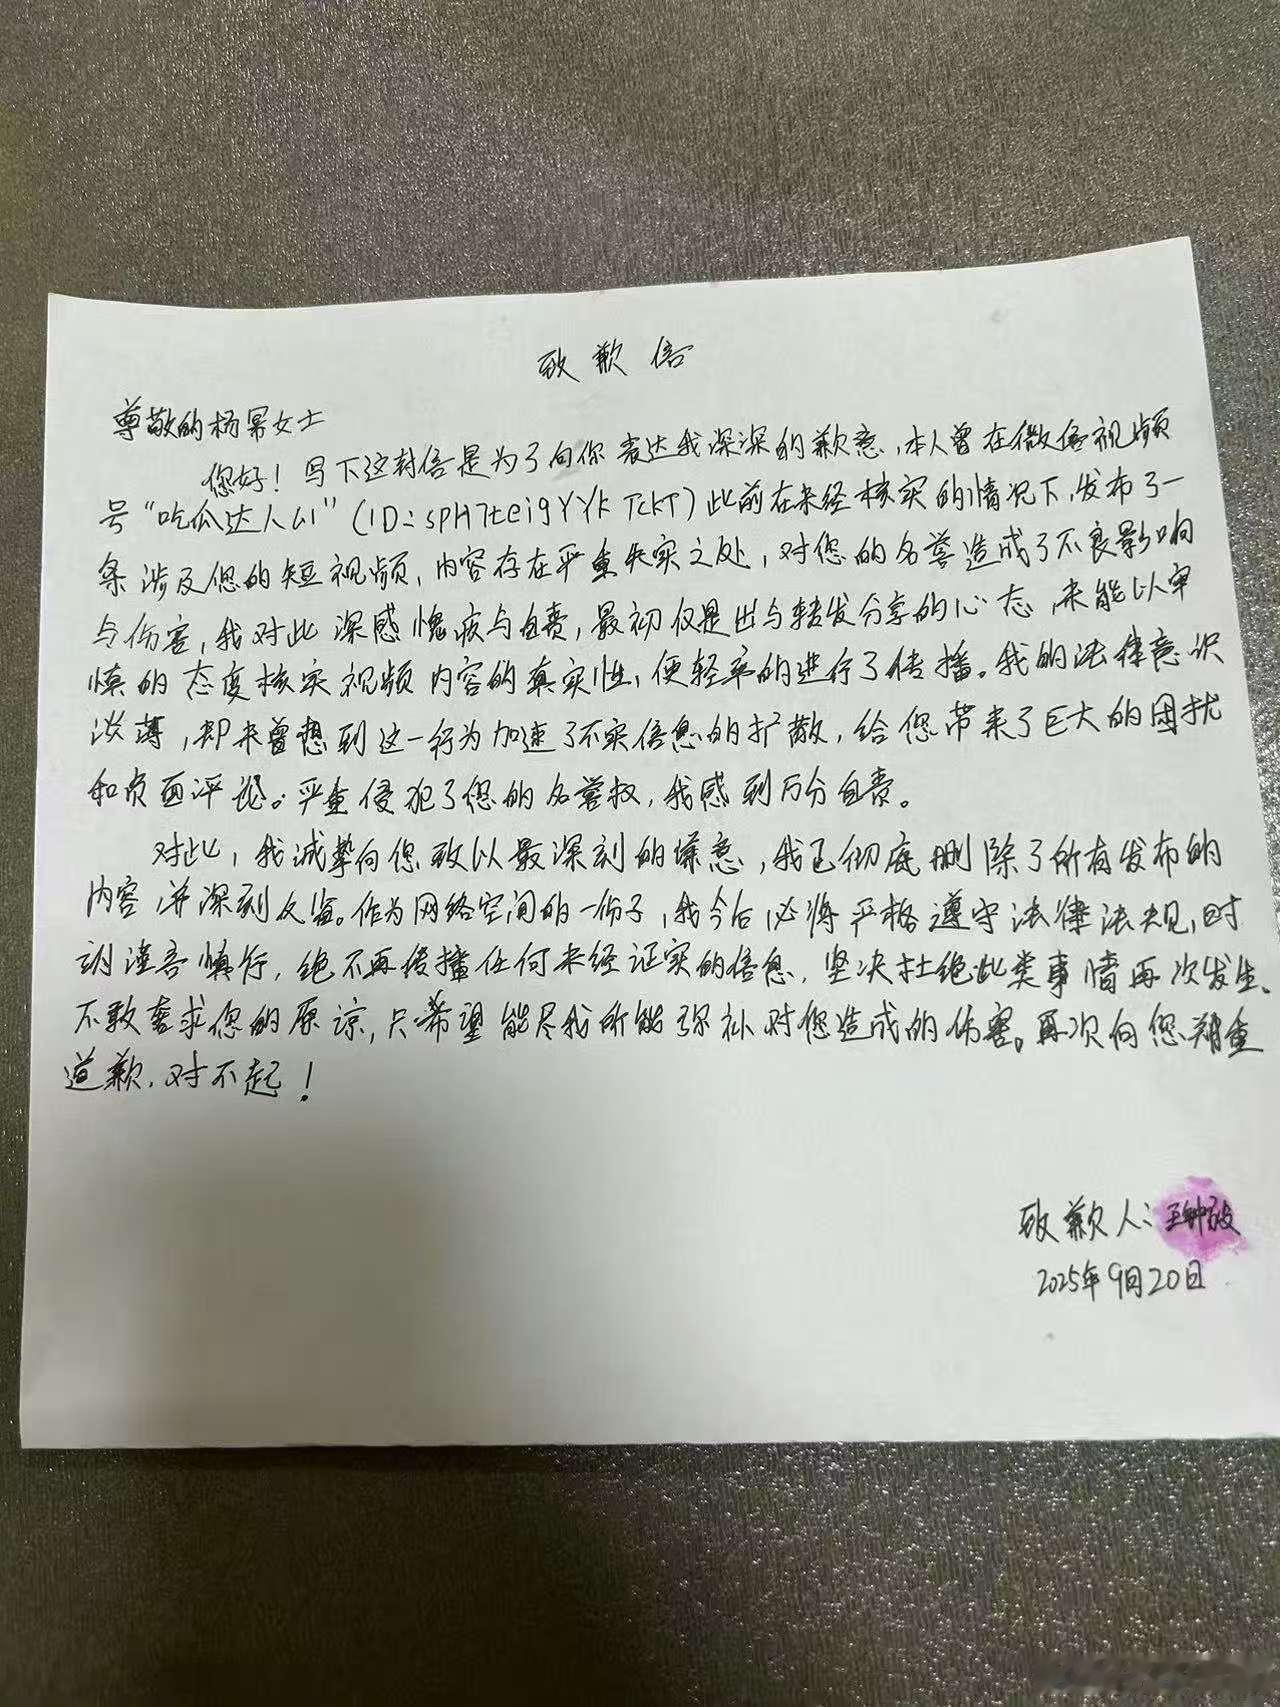 致歉信
尊敬的杨幂女士
您好！写下这封信是为了向你表达我深深的歉意，本人曾在微信视频
号“吃瓜达人厶1”（ID：spH7teigYYk TckT）此前在未经核实的情况下，发布了一
条涉及您的短视频，内容存在严重失实之处，对您的名誉造成了不良影响
与伤害，我对此深感愧疚与自责，最初仅是出与转发分享的心态，未能以审
慎的态度核实视频内容的真实性，便轻率的进行了传播。我的法律意识
淡薄，却未曾想到这一行为加速了不实信息的扩散，给您带来了巨大的困扰
和负面评论。严重侵犯了您的名誉权，我感到万分自责。
对此，我诚挚向您致以最深刻的歉意，我已彻底删除了所有发布的
内容，并深刻反省。作为网络空间的一份子，我今后必将严格遵守法律法规，时
刻谨言慎行，绝不再传播任何未经证实的信息，坚决杜绝此类事情再次发生。
不敢奢求您的原谅，只希望能尽我所能弥补对您造成的伤害。再次向您郑重
道歉，对不起！
致歉人：
2025年9月20日